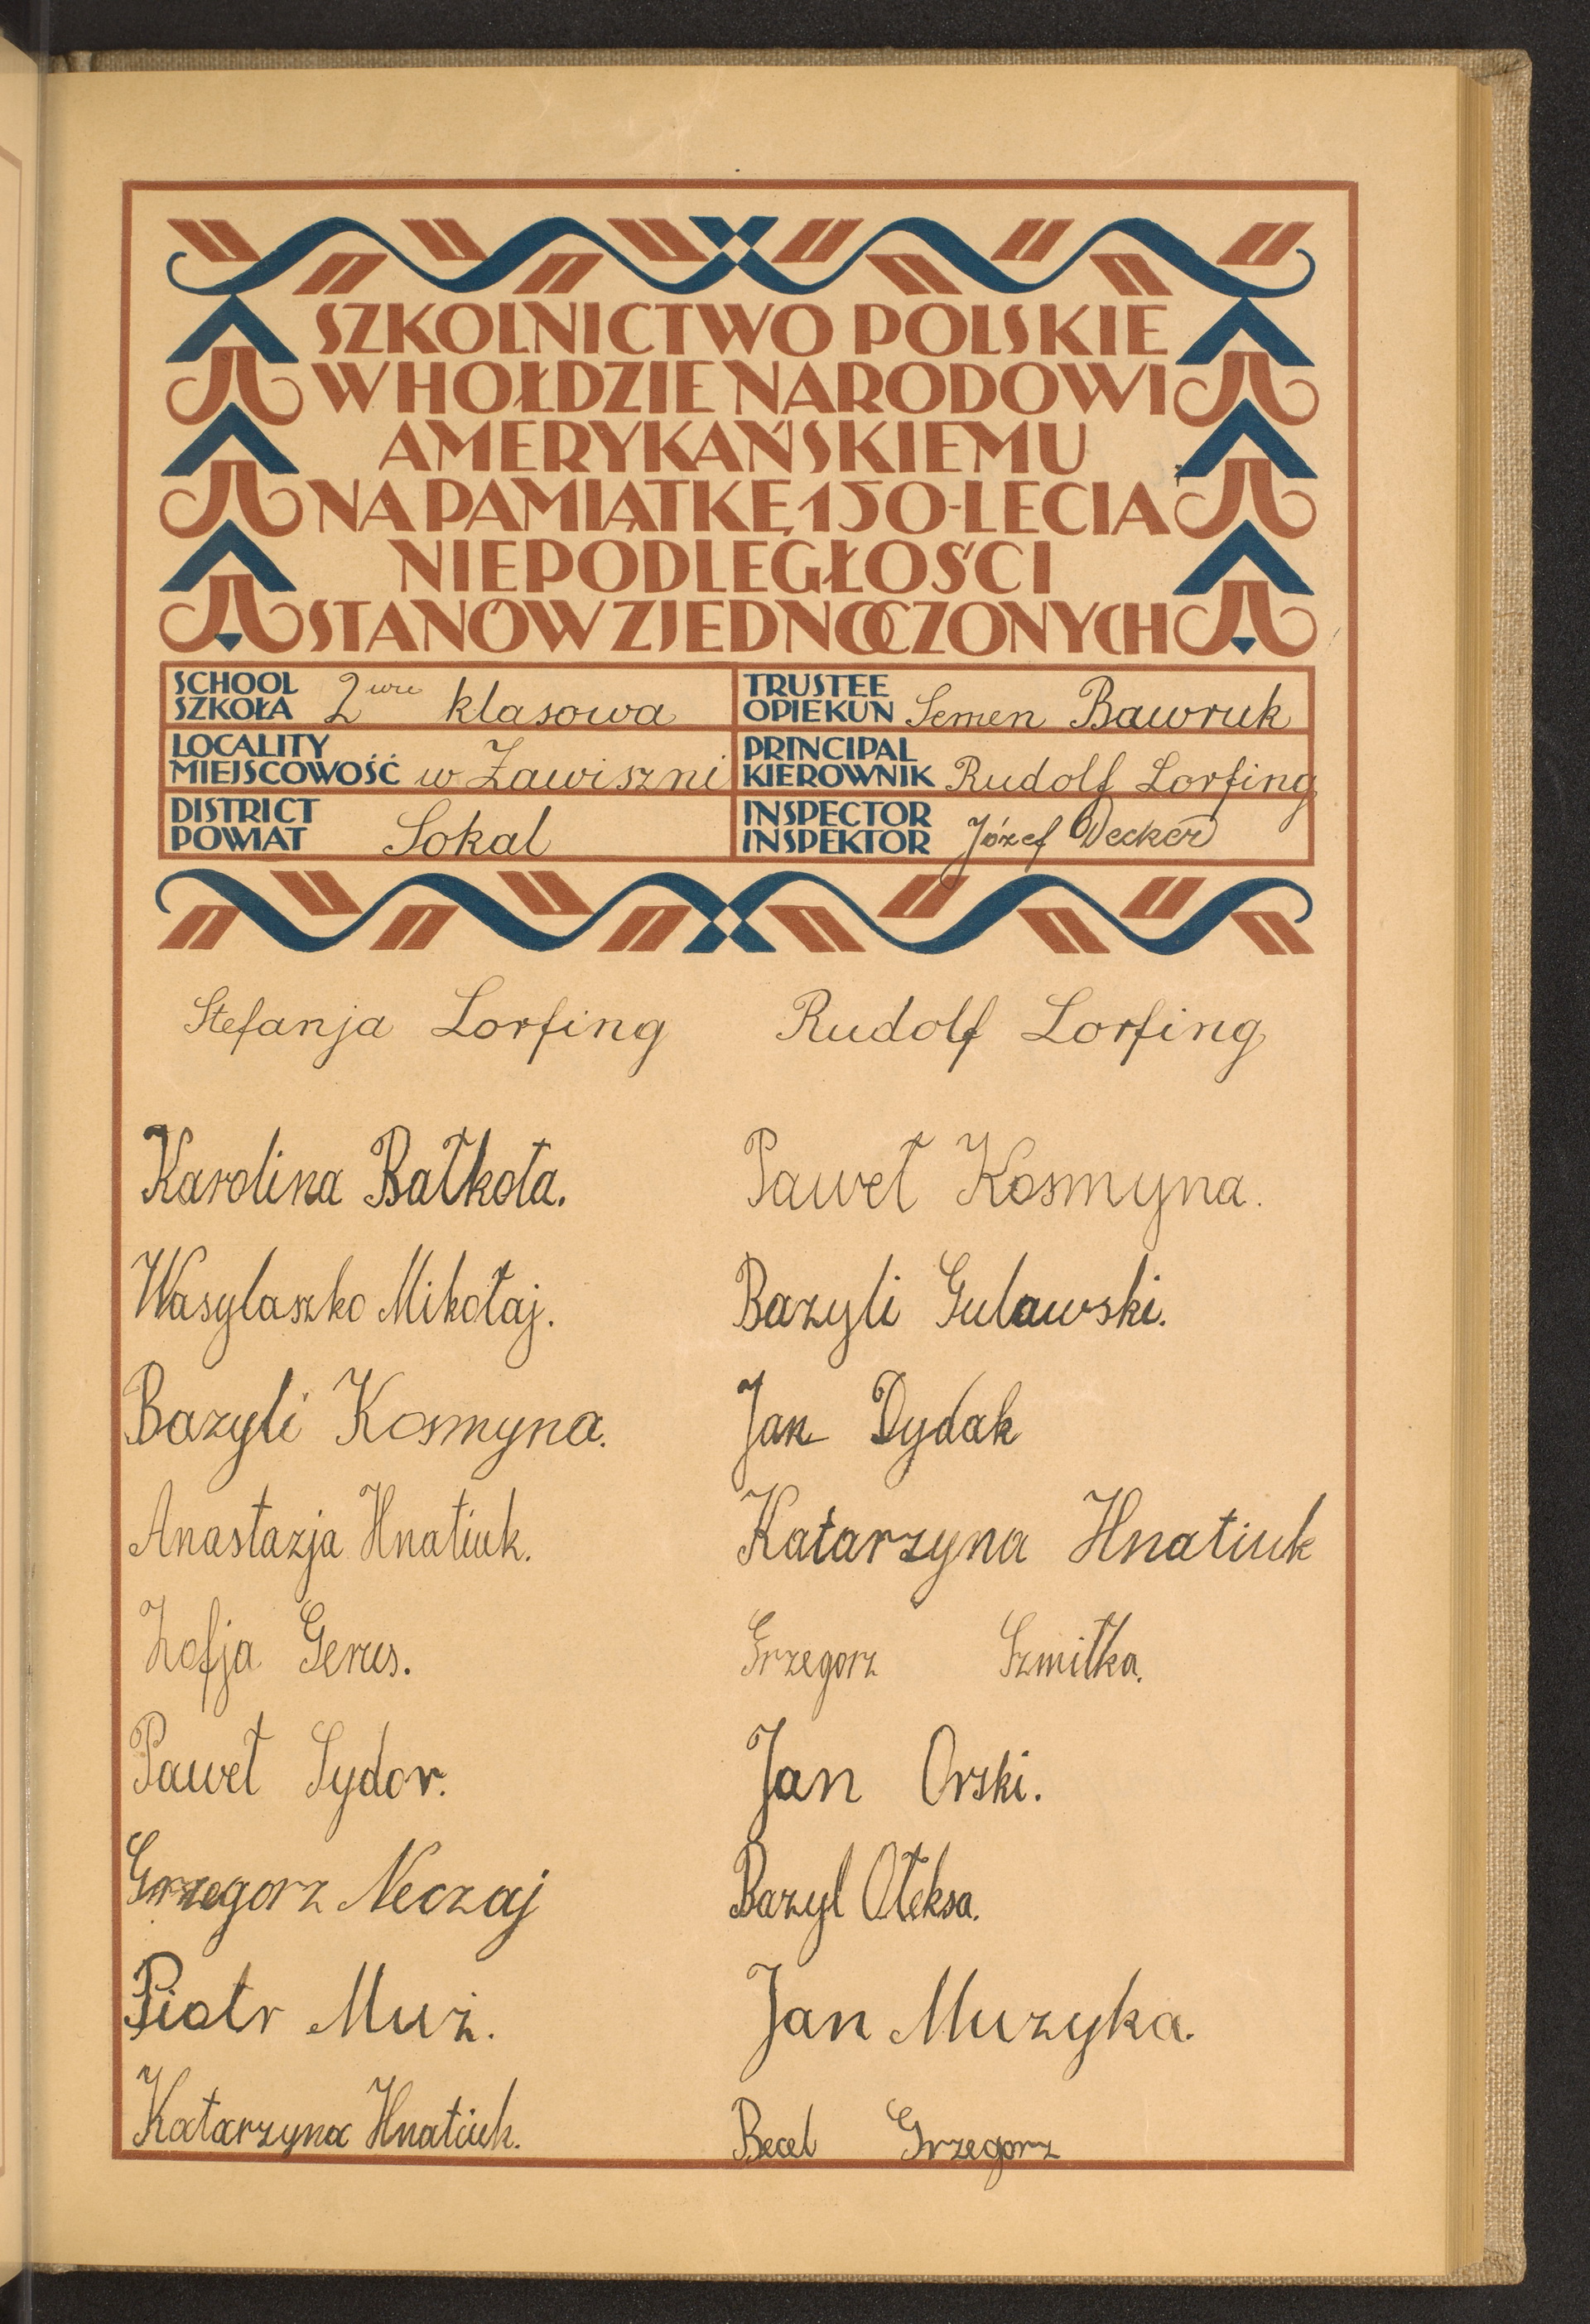 SZKOLNICTWO POLSKIE
W HOŁDZIE NARODOWI
AMERYKAŃSKIEMU
NA PAMIĄTKĘ 150-LECIA
NIEPODLEGŁOŚCI
STANÓW ZJEDNOCZONYCH
SCHOOL
SZKOŁA 2wu klasowa
TRUSTEE
OPIEKUN Semen Bawruk
LOCALITY
MIEJSCOWOŚĆ w Zawiszni
PRINCIPAL
KIEROWNIK Rudolf Lorfing
DISTRICT
POWIAT Sokal
INSPECTOR
INSPEKTOR Józef Decker
Stefanja Lorfing Rudolf Lorfing
Karolina Bałkoła. Paweł Kosmyna.
Wasylaszko Mikołaj. Bazyli Gulawski.
Bazyli Kosmyna. Jan Dydak
Anastazja Hnatiuk. Katarzyna Hnatiuk
Zofja Gerus. Grzegorz Szmiłka.
Paweł Sydor. Jan Orski.
Grzegorz Neczaj Bazyl Ołeksa.
Piotr Muż. Jan Muzyka.
Katarzyna Hnatiuk. Becel Grzegorz